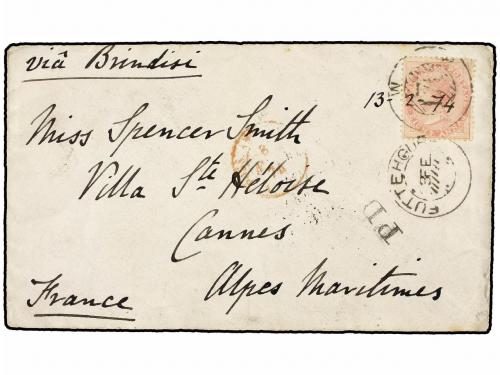 viâ Brindisi
13-2-74
Miss Spencer Smith
Villa Ste Heloise
Cannes
Alpes Maritimes
France
FUTTEHGUR
FE
PD